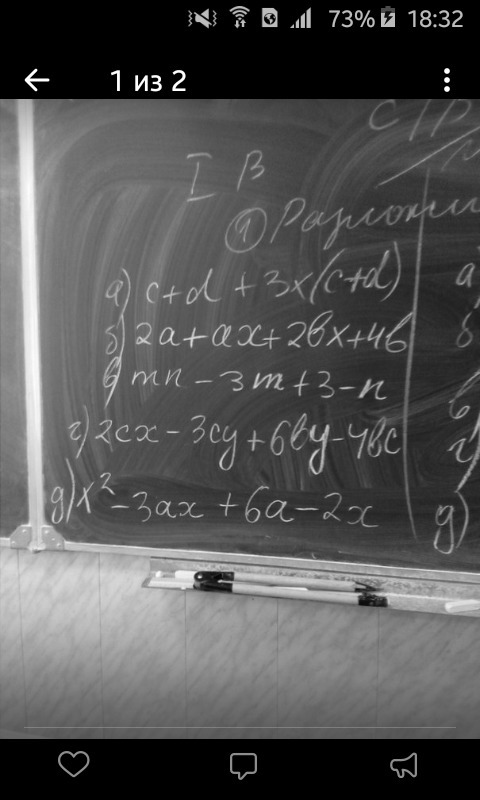 73% 18:32
1 из 2
С/Р
I В
① Разложи
а) c+d + 3x(c+d)
а
б) 2a+ax+2bx+4b
б
в) mn - 3m + 3 - n
в)
г) 2cx - 3cy + 6by - 4bc
г)
д) x² - 3ax + 6a - 2x
д)